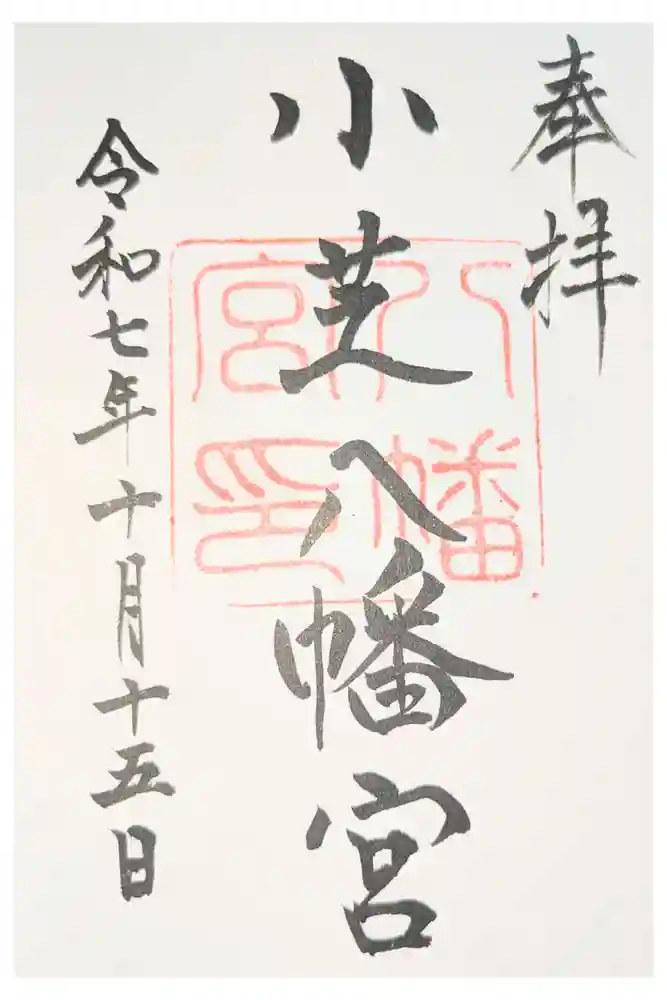 奉拝
小芝八幡宮
八幡
宮印
令和七年十月十五日